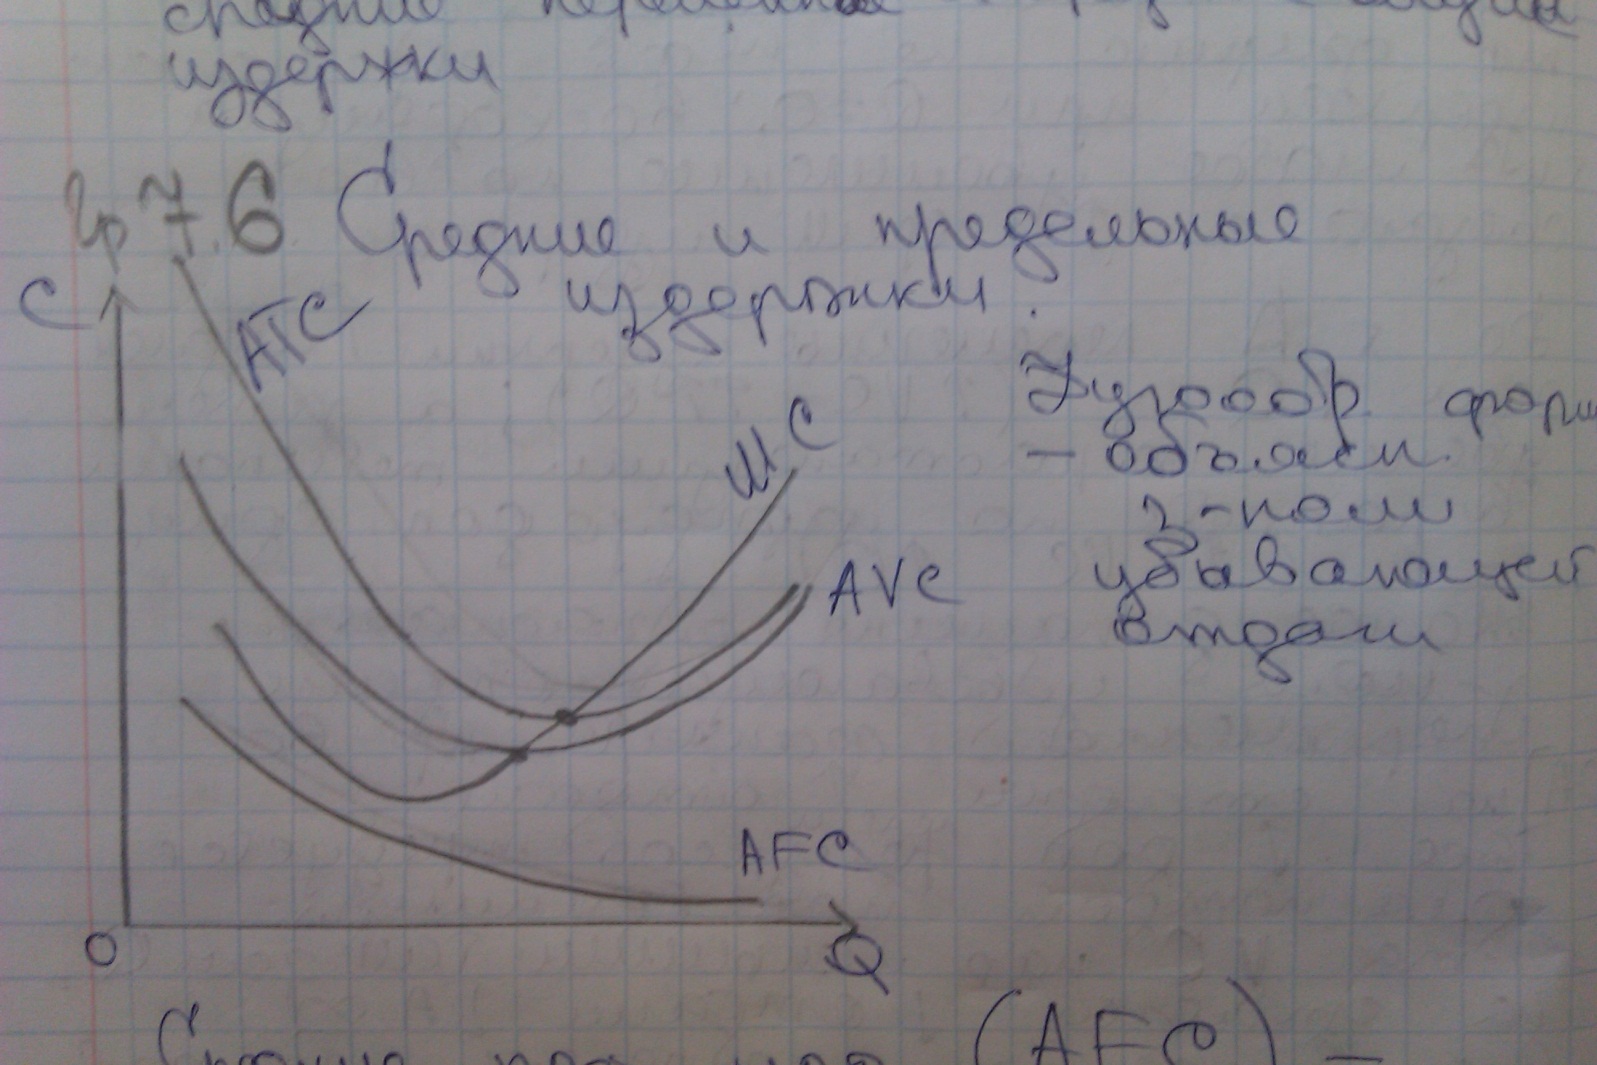 средние переменные
издержки
Гр 7.6 Средние и предельные
издержки.
C
ATC
MC
Дугообр форм
- объясн.
з-ном
убывающей
отдачи
AVC
AFC
0
Q
Средние (AFC) -